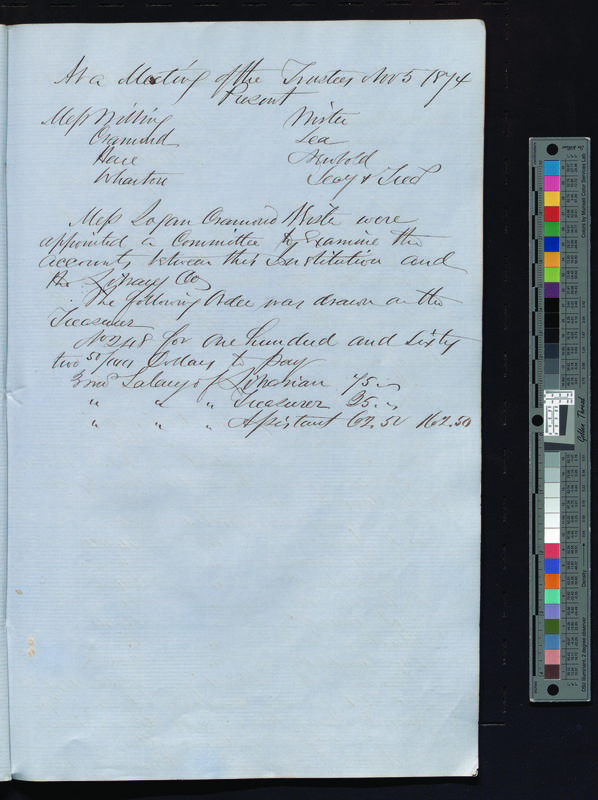 At a Meeting of the Trustees Nov 5 1874
Present
Mess Willing Wister
Cramond Lea
Hare Newbold
Wharton Secy & Tres
Mess Logan Cramond Wister were
appointed a Committee to Examine the
accounts between this Institution and
the Library Co
The following Order was drawn on the
Treasurer
No 248 for one hundred and sixty
two 50/100 Dollars to pay
3 mos Salary of Librarian 75 "
" " " Treasurer 25 "
" " " Assistant 62.50 162.50